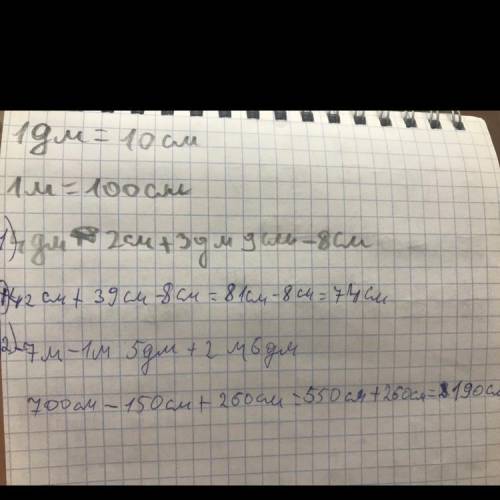 1дм = 10 см
1м = 100 см
1) 4дм 2см + 3дм 9см - 8см
42 см + 39 см - 8 см = 81 см - 8 см = 74 см
2) 7м - 1м 5дм + 2 м 6дм
700 см - 150 см + 260 см = 550 см + 260 см = 190 см